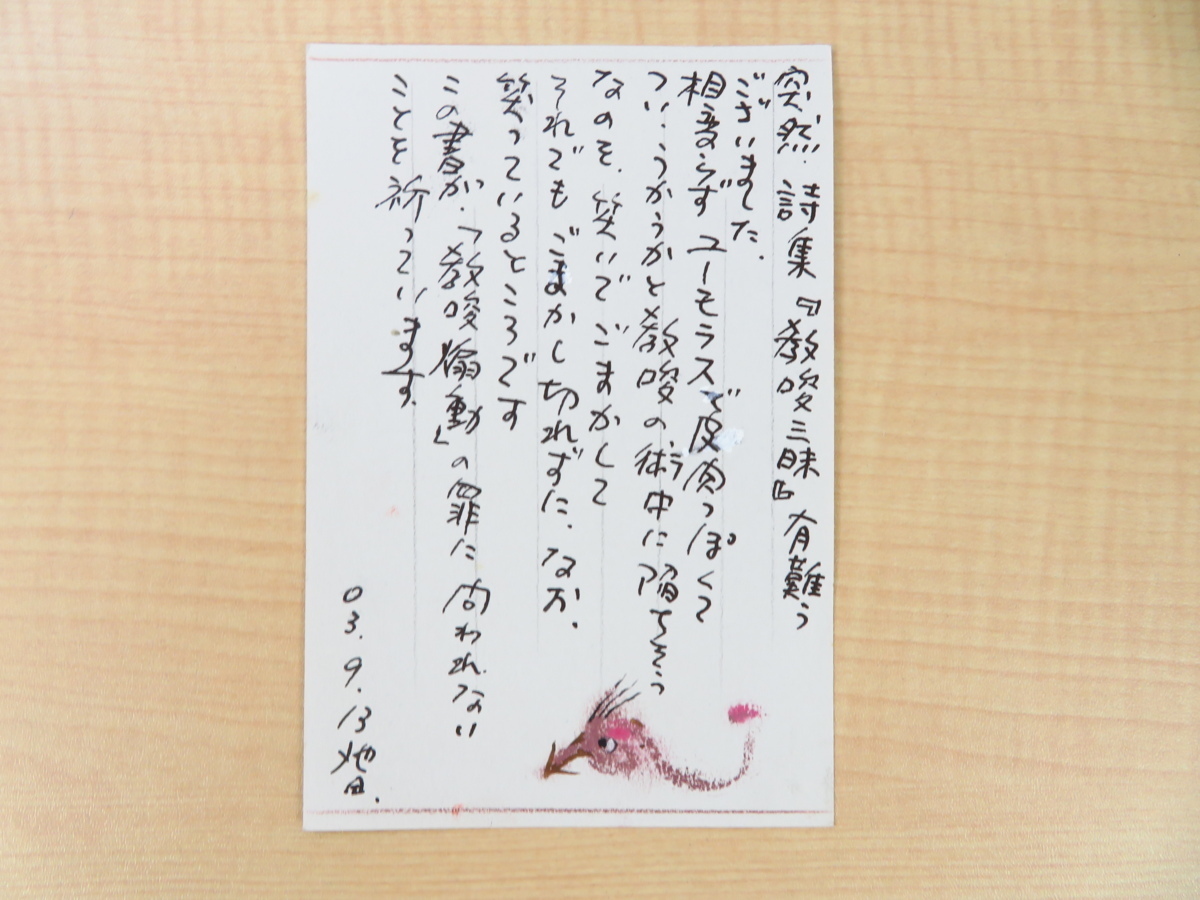 突然、詩集『教唆三昧』有難う
ございました.
相変らず ユーモラスで皮肉っぽくて
つい、うかうかと教唆の術中に陥ちそう
なのを、笑いで ごまかして
それでも ごまかし切れずに、なお、
笑っているところです
この書が、「教唆煽動」の罪に 問われない
ことを 祈っています.
03.9.13